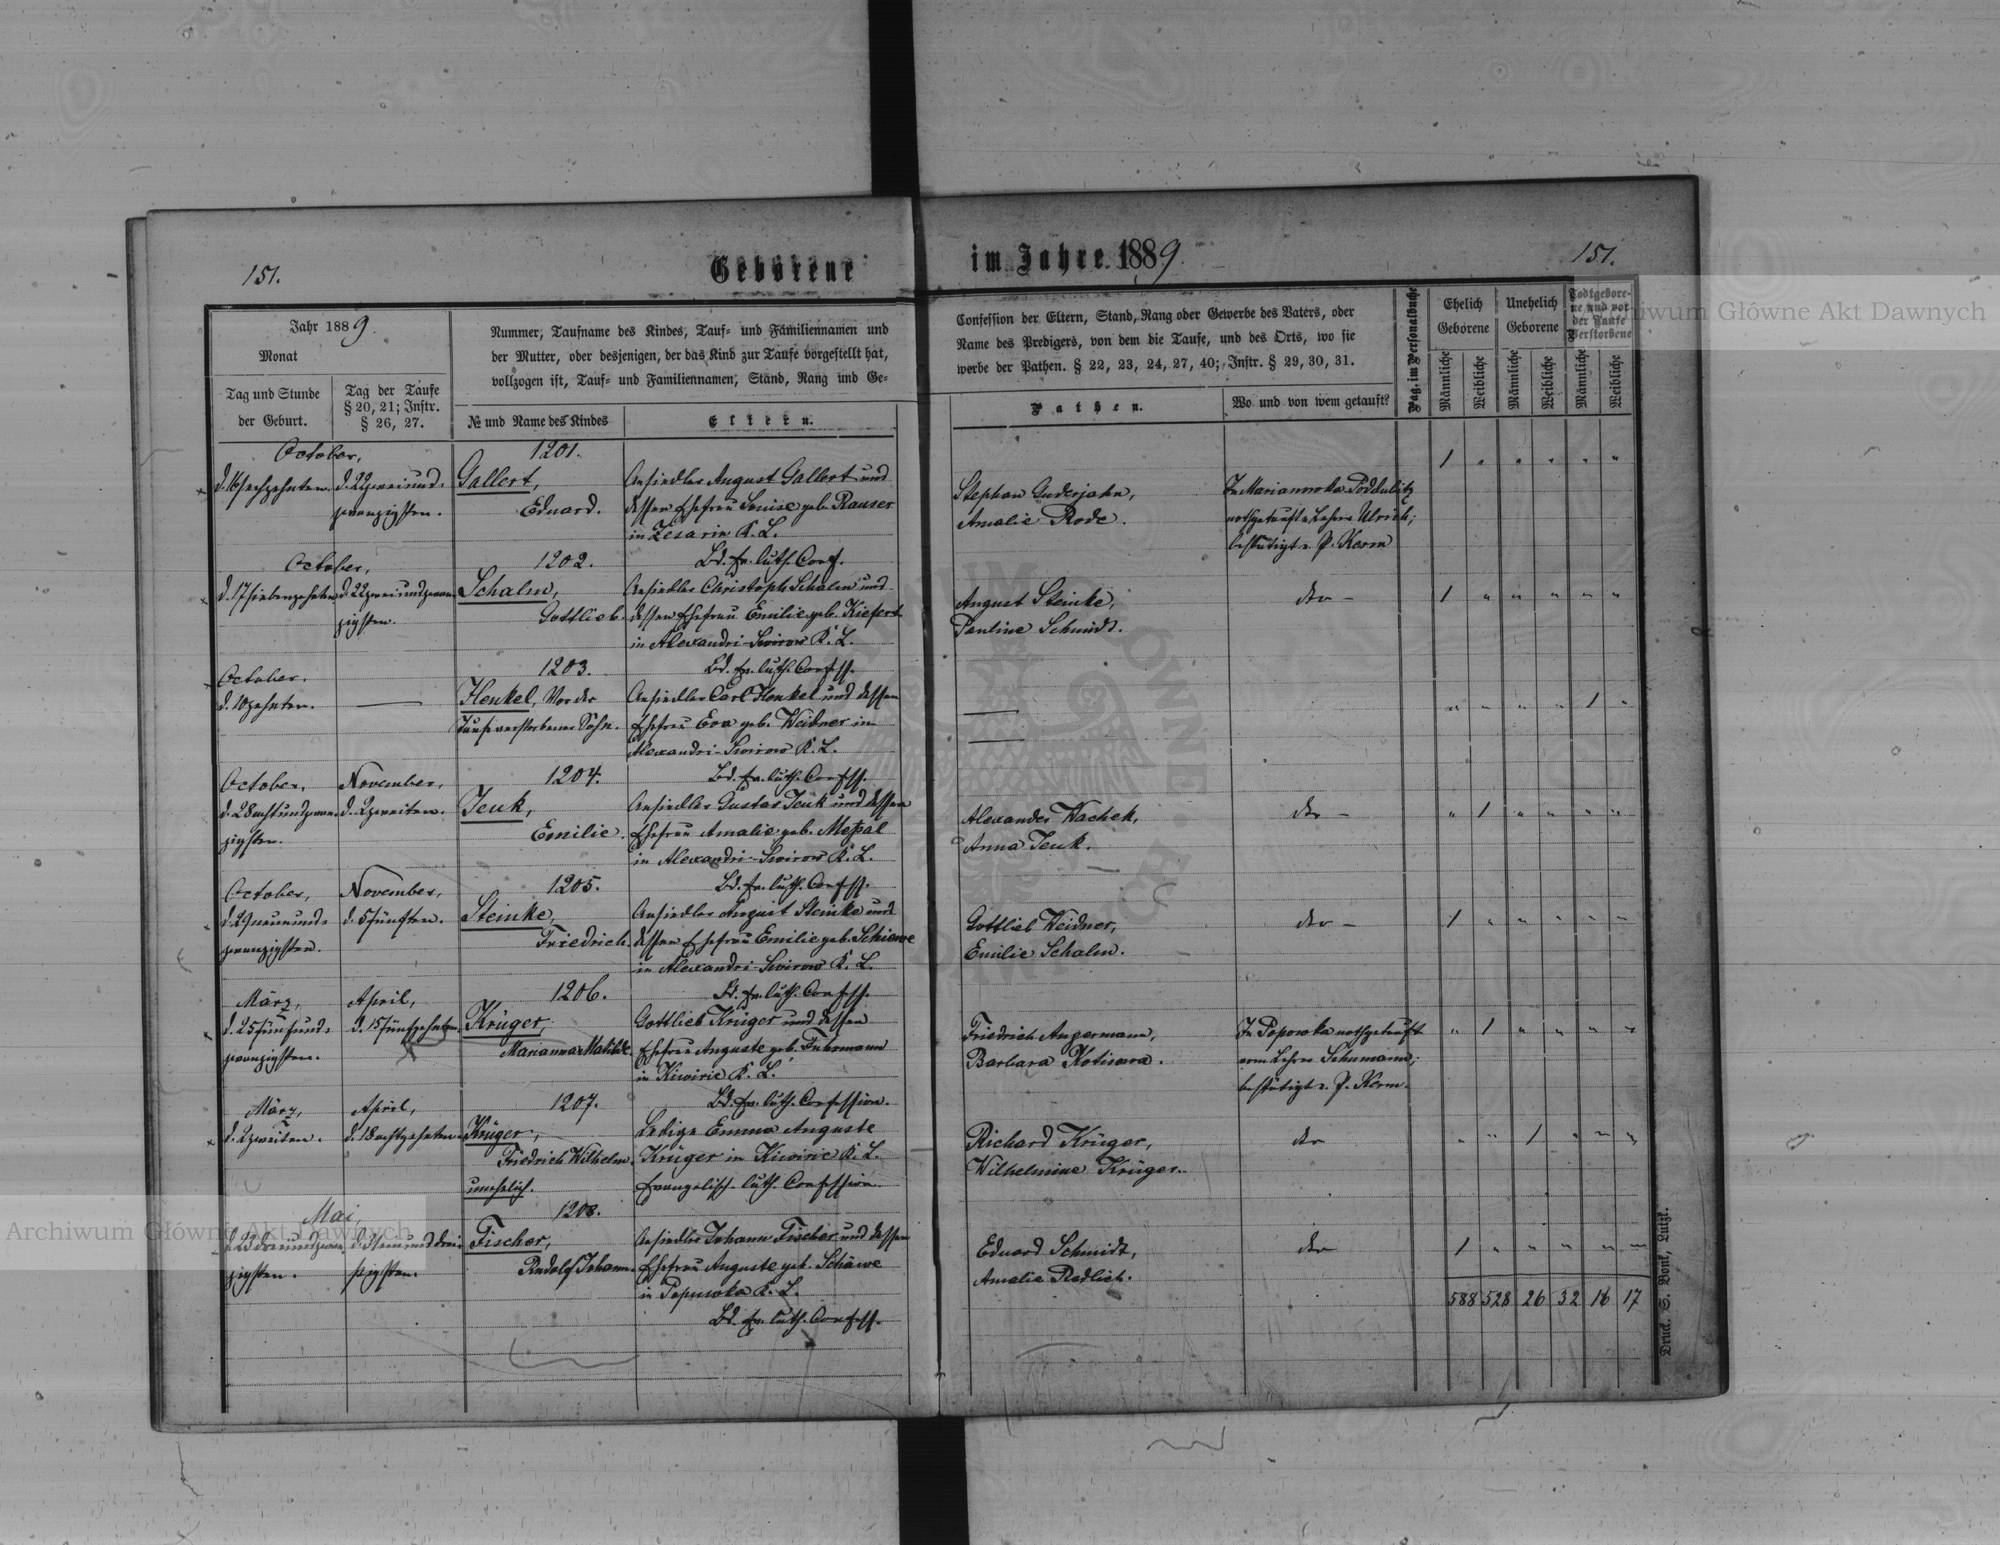 151.
Geborene
im Jahre 1889.
151.
Jahr 1889.
Monat
Tag und Stunde
der Geburt.
Tag der Taufe
§ 20, 21; Instr.
§ 26, 27.
Nummer, Taufname des Kindes, Tauf- und Familiennamen und
der Mutter, oder desjenigen, der das Kind zur Taufe vorgestellt hat,
vollzogen ist, Tauf- und Familiennamen, Stand, Rang und Ge-
№ und Name des Kindes
Eltern.
Confession der Eltern, Stand, Rang oder Gewerbe des Vaters, oder
Name des Predigers, von dem die Taufe, und des Orts, wo sie
werbe der Pathen. § 22, 23, 24, 27, 40; Instr. § 29, 30, 31.
Pathen.
Wo und von wem getauft?
Pag. im Personalbuche
Ehelich
Geborene
Unehelich
Geborene
Todtgebore-
ne und vor
der Taufe
Verstorbene
Männliche
Weibliche
Männliche
Weibliche
Männliche
Weibliche
October,
d. 16 sechzehnten.
d. 22 zweiund-
zwanzigsten.
1201.
Gallert,
Eduard.
Ansiedler August Gallert und
dessen Ehefrau Louise geb. Rauser
in K. L.
Bd. ev. luth. Conf.
Stephan Guderjahn,
Amalie Rode.
In Marianowka Poddubitz
nothgetauft v. Lehrer Ulrich;
bestätigt v. P. Kerm
1 " " " " "
October,
d. 17 siebenzehnten
d. 22 zweiundzwan-
zigsten.
1202.
Schalm,
Gottlieb.
Ansiedler Christoph Schalm und
dessen Ehefrau Emilie geb. Kiefert
in Alexandri-Swirow K. L.
Bd. ev. luth. Confess.
August Steinke,
Pauline Schmidt.
dto –
1 " " " " "
October.
d. 10 zehnten.
1203.
Henkel, Vor der
Taufe verstorbener Sohn.
Ansiedler Carl Henkel und dessen
Ehefrau Eva geb. Weidner in
Alexandri-Swirow K. L.
Bd. ev. luth. Confess.
" " " " 1 "
October,
d. 28 achtundzwan-
zigsten.
November,
d. 2 zweiten.
1204.
Jeuk,
Emilie.
Ansiedler Gustav Jeuk und dessen
Ehefrau Amalie geb. Meßal
in Alexandri-Swirow K. L.
Bd. ev. luth. Confess.
Alexander Wachek,
Anna Jeuk.
dto –
" 1 " " " "
October,
d. 29 neunund-
zwanzigsten.
November,
d. 5 fünften.
1205.
Steinke,
Friedrich.
Ansiedler August Steinke und
dessen Ehefrau Emilie geb. Schiewe
in Alexandri-Swirow K. L.
Bd. ev. luth. Confess.
Gottlieb Weidner,
Emilie Schalm.
dto –
1 " " " " "
März,
d. 25 fünfund-
zwanzigsten.
April,
d. 15 fünfzehnten.
1206.
Krüger,
Marianna Matilde.
Gottlieb Krüger und dessen
Ehefrau Auguste geb. Fuhrmann
in Kiwirie K. L.
Bd. ev. luth. Confession.
Friedrich Angermann,
Barbara Kotiwra.
In Popowka nothgetauft
vom Lehrer Schumann;
bestätigt v. P. Kerm.
" 1 " " " "
März,
d. 2 zweiten.
April,
d. 18 achtzehnten.
1207.
Krüger,
Friedrich Wilhelm.
unehelich.
Ledige Emma Auguste
Krüger in Kiwirie K. L.
Evangelisch-luth. Confession.
Richard Krüger,
Wilhelmine Krüger.
dto
" " 1 " " "
Mai,
d. 23 dreiundzwan-
zigsten.
d. 31 einunddrei-
sigsten.
1208.
Fischer,
Rudolf Johann.
Ansiedler Johann Fischer und dessen
Ehefrau Auguste geb. Schäwe
in Popowka K. L.
Bd. ev. luth. Confess.
Eduard Schmidt,
Amalie Redlich.
dto
1 " " " " "
588 528 26 32 16 17
Druck. S. Bonk, Lutzk.
Archiwum Główne Akt Dawnych
Archiwum Główne Akt Dawnych